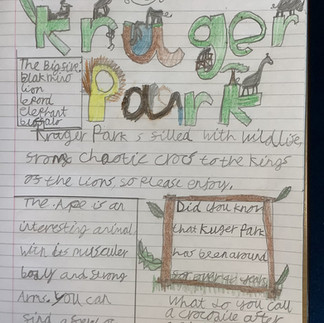 Kruger
Park
The Big 5 in
blak rhino
lion
lepord
elephant
buffalo
Kruger Park s filled with wildlife,
from chaotic crocs to the kings
of the lions, so please enjoy.
The Ape is an
interesting animal
with its musculer
body and strong
Arms. you can
find
Did you know
that Kuger Park
has been around
for over
years
what do you call
a crocodile after